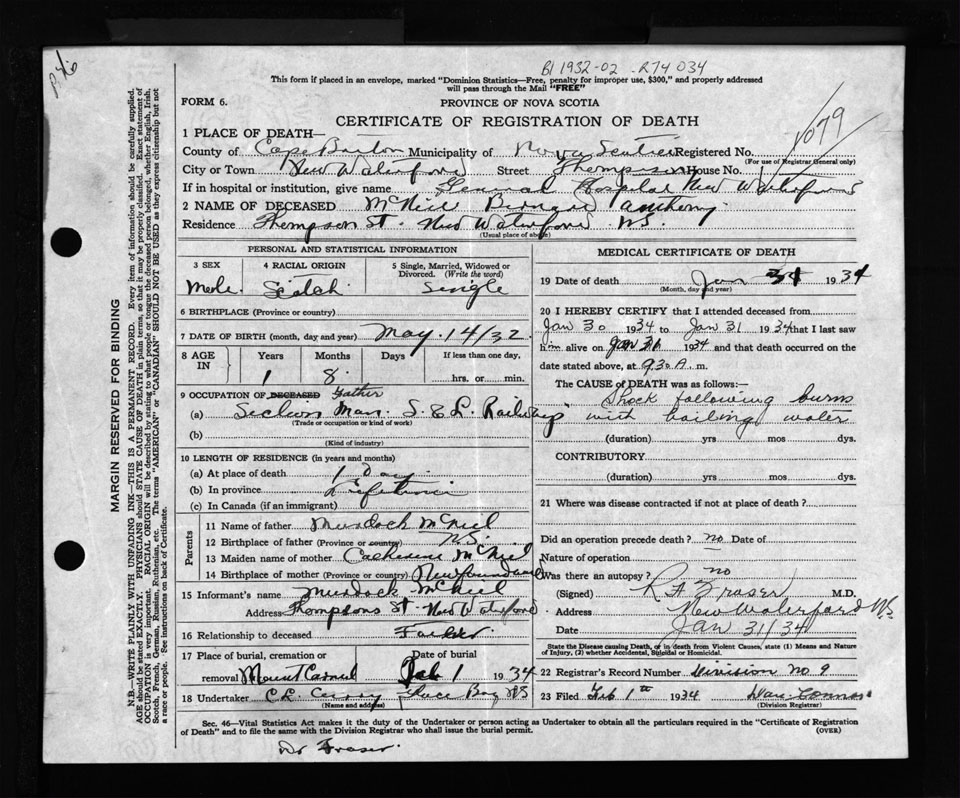 B1 1932-02 R74 034
This form if placed in an envelope, marked "Dominion Statistics—Free, penalty for improper use, $300," and properly addressed
will pass through the Mail "FREE"
FORM 6.
PROVINCE OF NOVA SCOTIA
1079
CERTIFICATE OF REGISTRATION OF DEATH
MARGIN RESERVED FOR BINDING
N.B.—WRITE PLAINLY WITH UNFADING INK—THIS IS A PERMANENT RECORD. Every item of information should be carefully supplied.
AGE should be stated EXACTLY. PHYSICIANS should STATE CAUSE OF DEATH in plain terms, so that it may be properly classified. Exact statement of
OCCUPATION is very important. RACIAL ORIGIN will be described by stating to what people or tongue the deceased person belonged, whether English, Irish,
Scotch, French, German, Russian, Ruthenian, etc. The terms "AMERICAN" or "CANADIAN" SHOULD NOT BE USED as they express citizenship but not
a race or people. See instructions on back of Certificate.
1 PLACE OF DEATH—
County of Cape Breton Municipality of Registered No.
(For use of Registrar General only)
City or Town New Waterford Street Thompson House No.
If in hospital or institution, give name General Hospital New Waterford
2 NAME OF DECEASED McNeil Bernard Anthony
Residence Thompson St. New Waterford NS.
(Usual place of abode)
PERSONAL AND STATISTICAL INFORMATION
3 SEX
4 RACIAL ORIGIN
5 Single, Married, Widowed or
Divorced. (Write the word)
Male Single
6 BIRTHPLACE (Province or country)
7 DATE OF BIRTH (month, day and year) May 14/32
8 AGE IN Years Months Days If less than one day,
1 8 hrs. or min.
9 OCCUPATION OF DECEASED Father
(a) Section Man S & L Railway
(Trade or occupation or kind of work)
(b)
(Kind of industry)
10 LENGTH OF RESIDENCE (in years and months)
(a) At place of death 1 Day
(b) In province Lifetime
(c) In Canada (if an immigrant)
Parents
11 Name of father Murdock McNeil
12 Birthplace of father (Province or country) NS.
13 Maiden name of mother Catherine McNeil
14 Birthplace of mother (Province or country) Newfoundland
15 Informant's name Murdock McNeil
Address Thompsons St New Waterford
16 Relationship to deceased Father
17 Place of burial, cremation or
removal Mount Carmel Date of burial Feb 1 1934
18 Undertaker C.L. Curry Glace Bay NS
(Name and address)
MEDICAL CERTIFICATE OF DEATH
19 Date of death Jan 31 1934
(Month, day and year)
20 I HEREBY CERTIFY that I attended deceased from
Jan 30 1934 to Jan 31 1934 that I last saw
him alive on Jan 31 1934 and that death occurred on the
date stated above, at 9.30 A. m.
The CAUSE OF DEATH was as follows:—
Shock following burns
with boiling water
(duration) yrs mos dys.
CONTRIBUTORY
(duration) yrs mos dys.
21 Where was disease contracted if not at place of death?
Did an operation precede death? no Date of
Nature of operation
Was there an autopsy? no
(Signed) R F Fraser M.D.
Address New Waterford NS
Date Jan 31/34
State the Disease causing Death, or in death from Violent Causes, state (1) Means and Nature
of Injury, (2) whether Accidental, Suicidal or Homicidal.
22 Registrar's Record Number Division No 9
23 Filed Feb 1th 1934 Connor
(Division Registrar)
Sec. 46—Vital Statistics Act makes it the duty of the Undertaker or person acting as Undertaker to obtain all the particulars required in the "Certificate of Registration
of Death" and to file the same with the Division Registrar who shall issue the burial permit.
(OVER)
Dr Fraser.